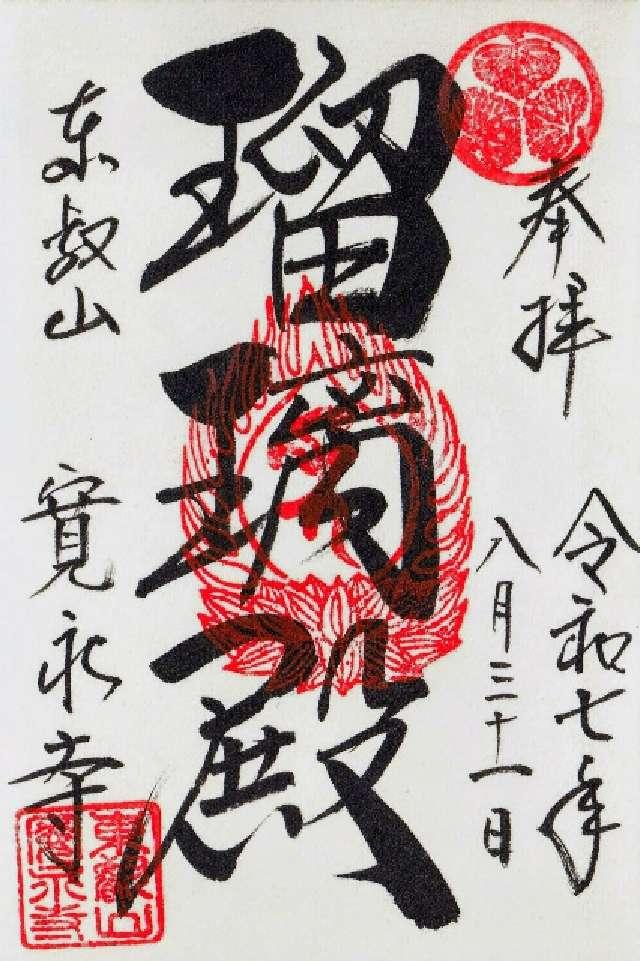 奉拝
令和七年
八月三十一日
瑠璃殿
東叡山
寛永寺
東叡山
寛永寺